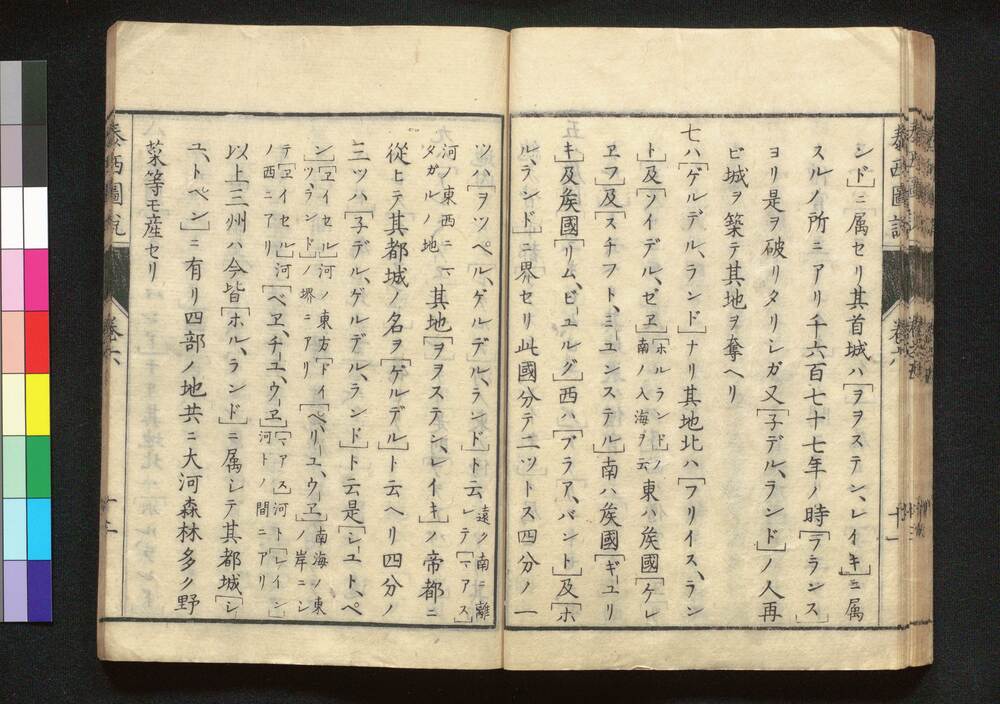 泰西圖說
卷六
十一
ンド」ニ属セリ其首城ハ「ヲヲステン、レイキ」ニ属
スルノ所ニアリ千六百七十七年ノ時「フランス」
ヨリ是ヲ破リタリシガ又「子デル、ランド」ノ人再
ビ城ヲ築テ其地ヲ奪ヘリ
七ハ「ゲルデル、ランド」ナリ其地北ハ「フリイス、ラン
ト」及「ソイデル、ゼヱ」「ホルランド」ノ南ノ入海ヲ云東ハ矦國「ゲレ
ヱフ」及「スチフト、ミユンステル」南ハ矦國「ギーユリ
キ」及矦國「リム、ビーユルグ」西ハ「ブラア、バント」及「ホ
ル、ランド」ニ界セリ此國分テ二ツトス四分ノ一
ツハ「ヲツペル、ゲルデル、ランド」ト云遠ク南ニ離レテ「マアス」
河ノ東西ニマタガルノ地其地「ヲヲステン、レイキ」ノ帝都ニ
從ヒテ其都城ノ名ヲ「ゲルデル」ト云ヘリ四分ノ
三ツハ「子デル、ゲルデル、ランド」ト云是「シユート、ペ
ン」「ヱイセル」河ノ東方「ドイツ、ランド」ノ堺ニアリ「ベリーユ、ウヱ」南海ノ東ノ岸ニシ
テ「ヱイセル」河ノ西ニアリ「ベヱ、チーユ、ウーヱ」「マアス」河ト「レイン」河トノ間ニアリ
以上三州ハ今皆「ホル、ランド」ニ属シテ其都城「シ
ユ、トペン」ニ有リ四部ノ地共ニ大河森林多ク野
菜等モ産セリ
泰西圖說
卷六